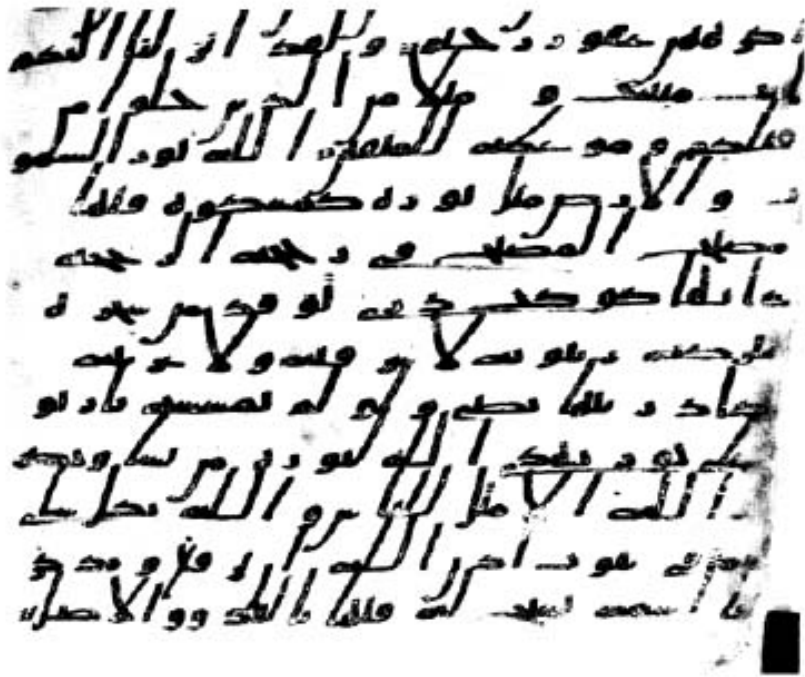 غفور رحيم ولقد انزلنا اليكم
ايت مبينت و مثلا من الذين خلوا من
قبلكم و موعظة للمتقين الله نور السمو
ت و الارض مثل نوره كمشكوة فيها
مصباح المصباح في زجاجة الزجاجـ
ـة كانها كوكب دري توقد من شجرة
مبركة زيتونة لا شرقية ولا غربية
يكاد زيتها يضي ولو لم تمسسه نار نو
ر على نور يهدي الله لنوره من يشا ويضر
ب الله الامثل للناس و الله بكل شي
عليم في بيوت اذن الله ان ترفع ويذكر
فيها اسمه يسبح له فيها بالغدو والاصل